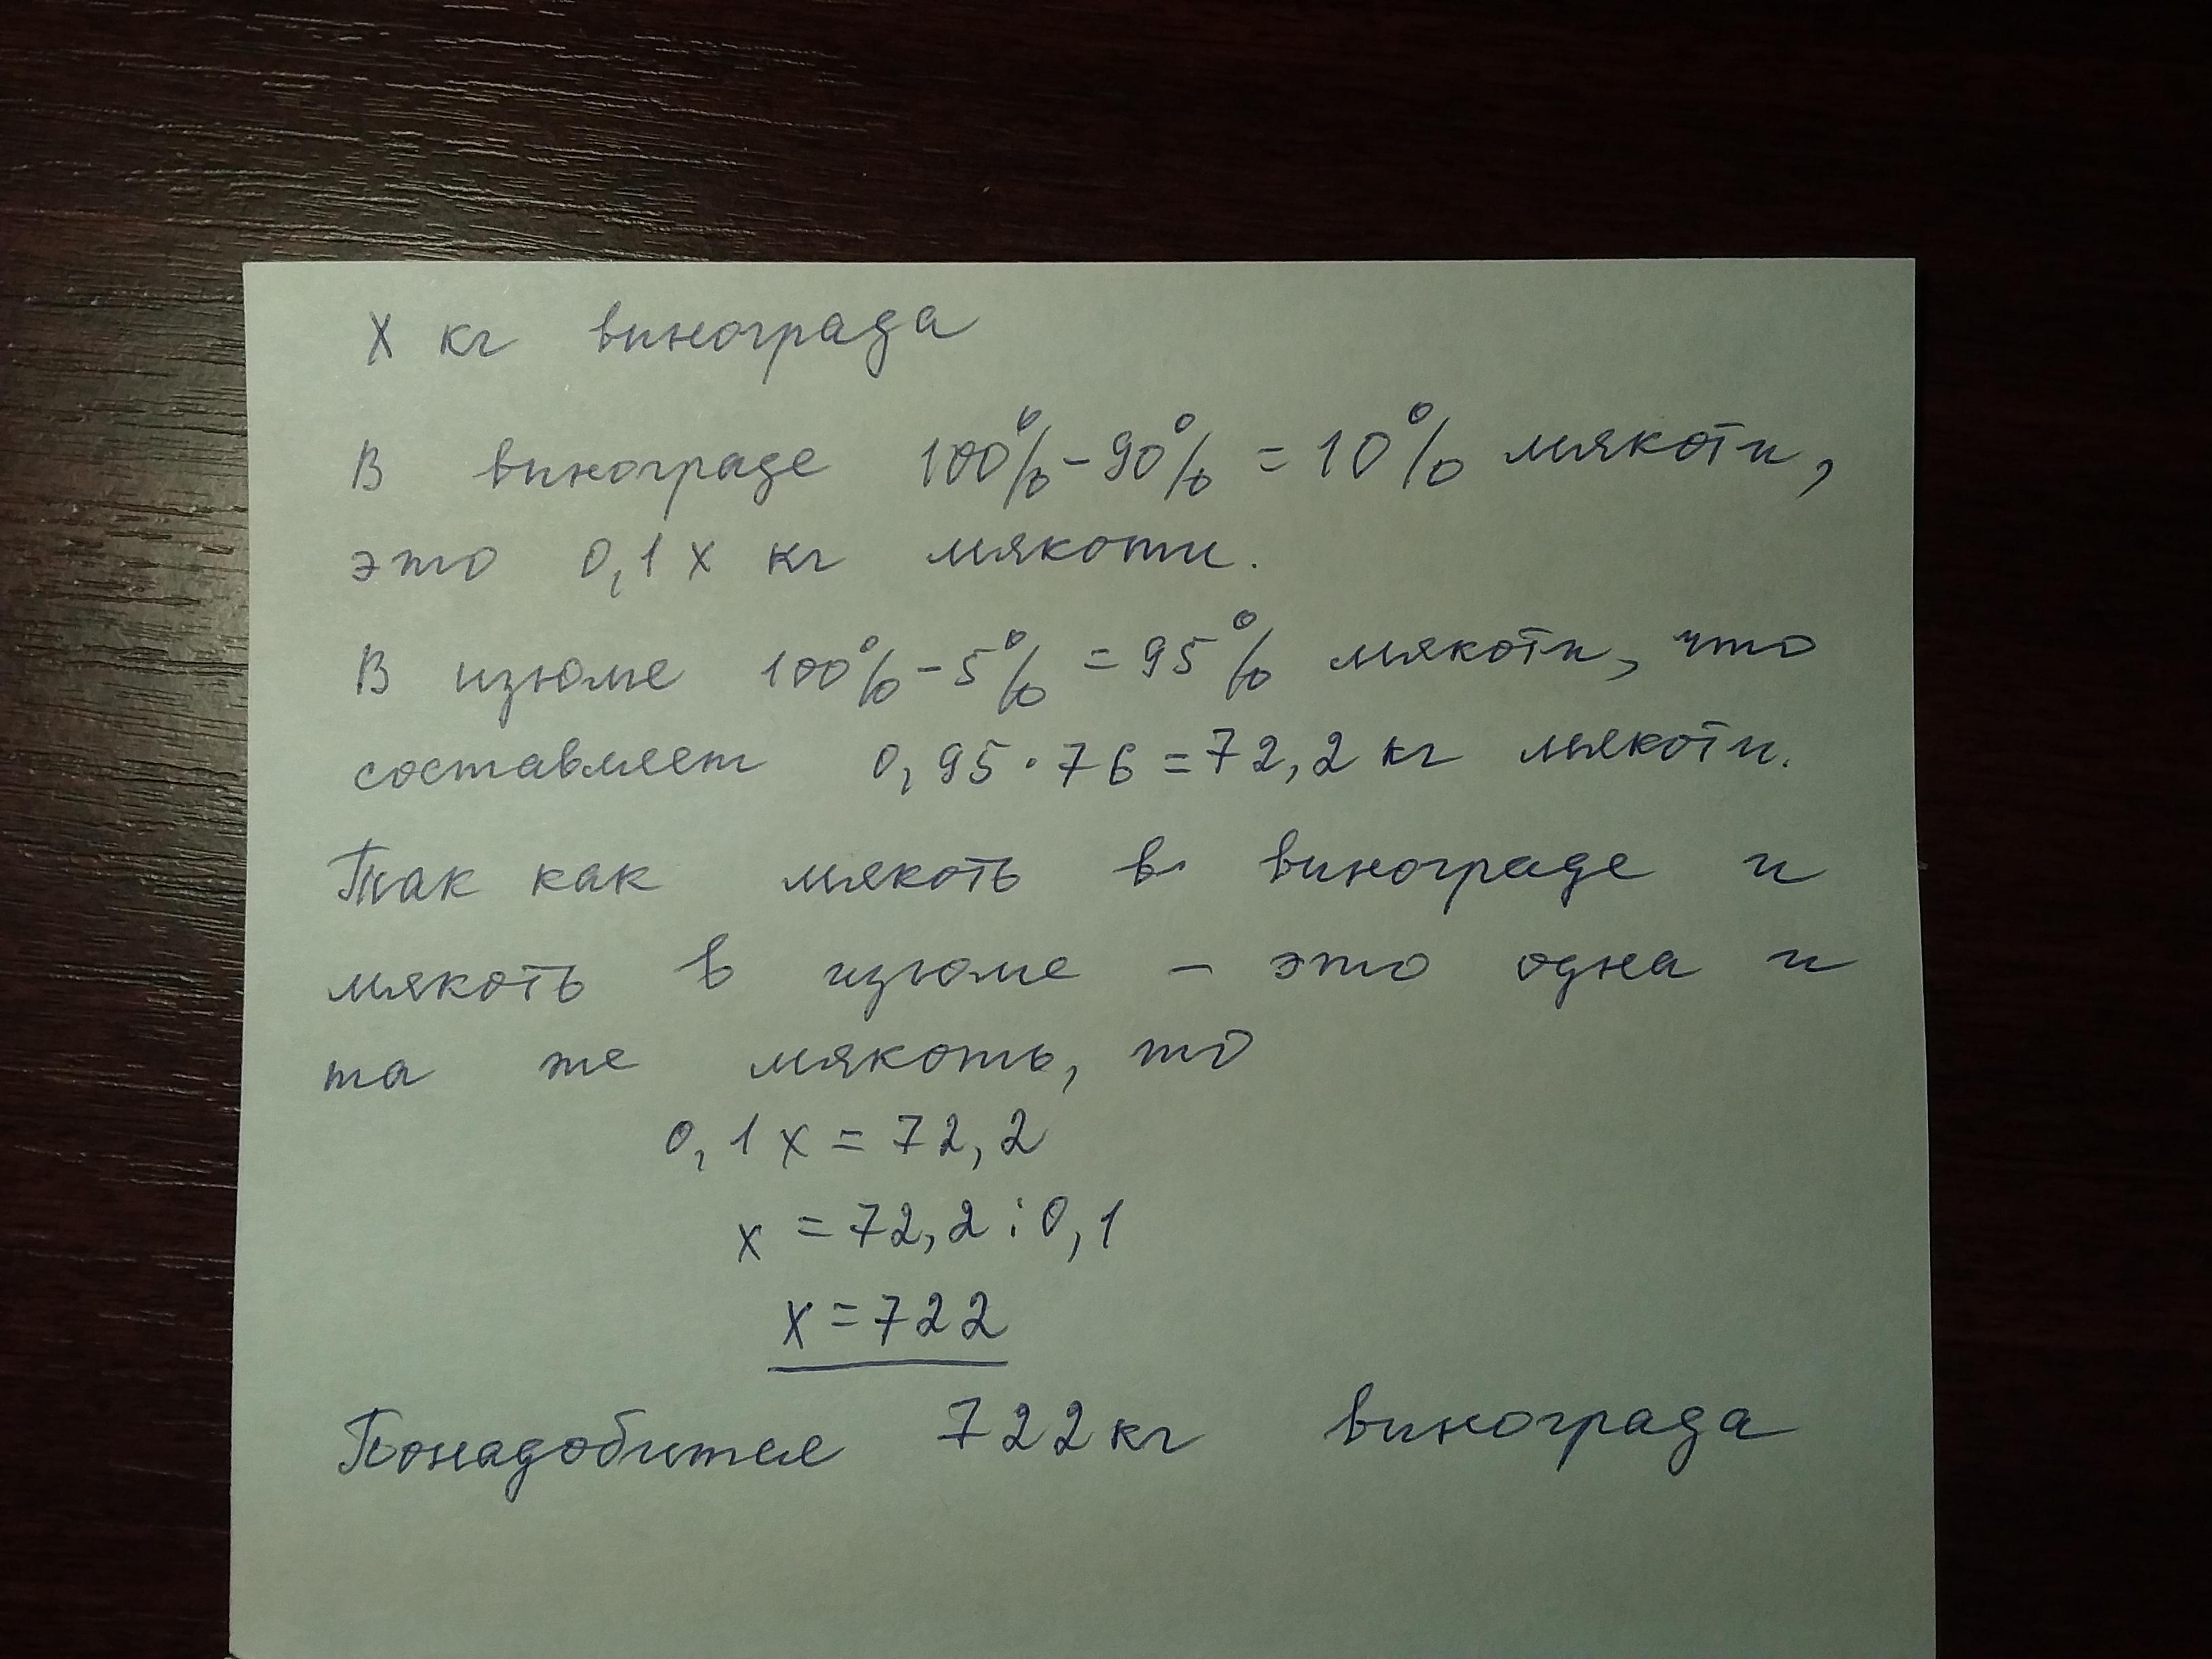 X кг винограда
В винограде 100% - 90% = 10% мякоти,
это 0,1 x кг мякоти.
В изюме 100% - 5% = 95% мякоти, что
составляет 0,95 · 76 = 72,2 кг мякоти.
Так как мякоть в винограде и
мякоть в изюме - это одна и
та же мякоть, то
0,1 x = 72,2
x = 72,2 : 0,1
x = 722
Понадобится 722 кг винограда